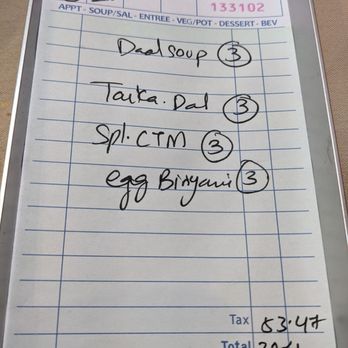 133102
APPT - SOUP/SAL - ENTREE - VEG/POT - DESSERT - BEV
Daal soup 3
Tarka. Dal 3
Spl. CTM 3
egg Biryani 3
Tax 53.47
Total